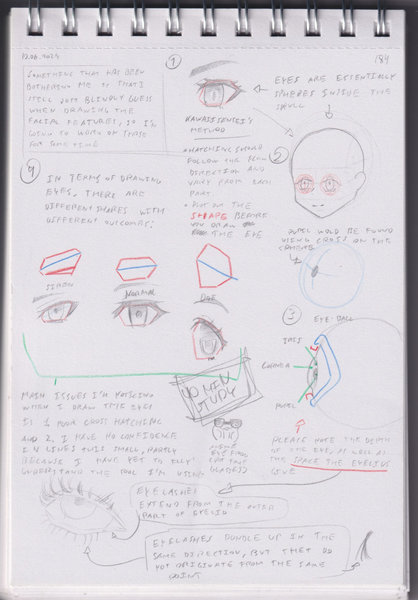 12.06.2024
184
SOMETHING THAT HAS BEEN
BOTHERING ME IS THAT I
STILL JUST BLINDLY GUESS
WHEN DRAWING THE
FACIAL FEATURES, SO I'M
GOING TO WORK ON THESE
FOR SOME TIME
1
KAWAIISENSEI'S
METHOD
EYES ARE ESSENTIALLY
SPHERES INSIDE THE
SKULL
• HATCHING SHOULD
FOLLOW THE FORM
DIRECTION AND
VARY FROM EACH
PART
• PUT ON THE
SHAPE BEFORE
YOU DRAW
THE EYE
2
PUPIL WOULD BE FOUND
USING CROSS ON THE
SPHERE
4
IN TERMS OF DRAWING
EYES, THERE ARE
DIFFERENT SHAPES WITH
DIFFERENT OUTCOMES:
SIREN
NORMAL
DOE
3
EYE BALL
IRIS
CORNEA
PUPIL
PLEASE NOTE THE DEPTH
OF THE EYE, AS WELL AS
THE SPACE THE EYELIDS
GIVE
30 MIN
STUDY
EYES
(OR
GLASSES)
MAIN ISSUES I'M NOTICING
WHEN I DRAW THE EYES
IS 1 POOR CROSS HATCHING
AND 2, I HAVE NO CONFIDENCE
IN LINES THIS SMALL, PARTLY
BECAUSE I HAVE YET TO FULLY
UNDERSTAND THE TOOL I'M USING
EYELASHES
EXTEND FROM THE OUTER
PART OF EYELID
EYELASHES BUNDLE UP IN THE
SAME DIRECTION, BUT THEY DO
NOT ORIGINATE FROM THE SAME
POINT